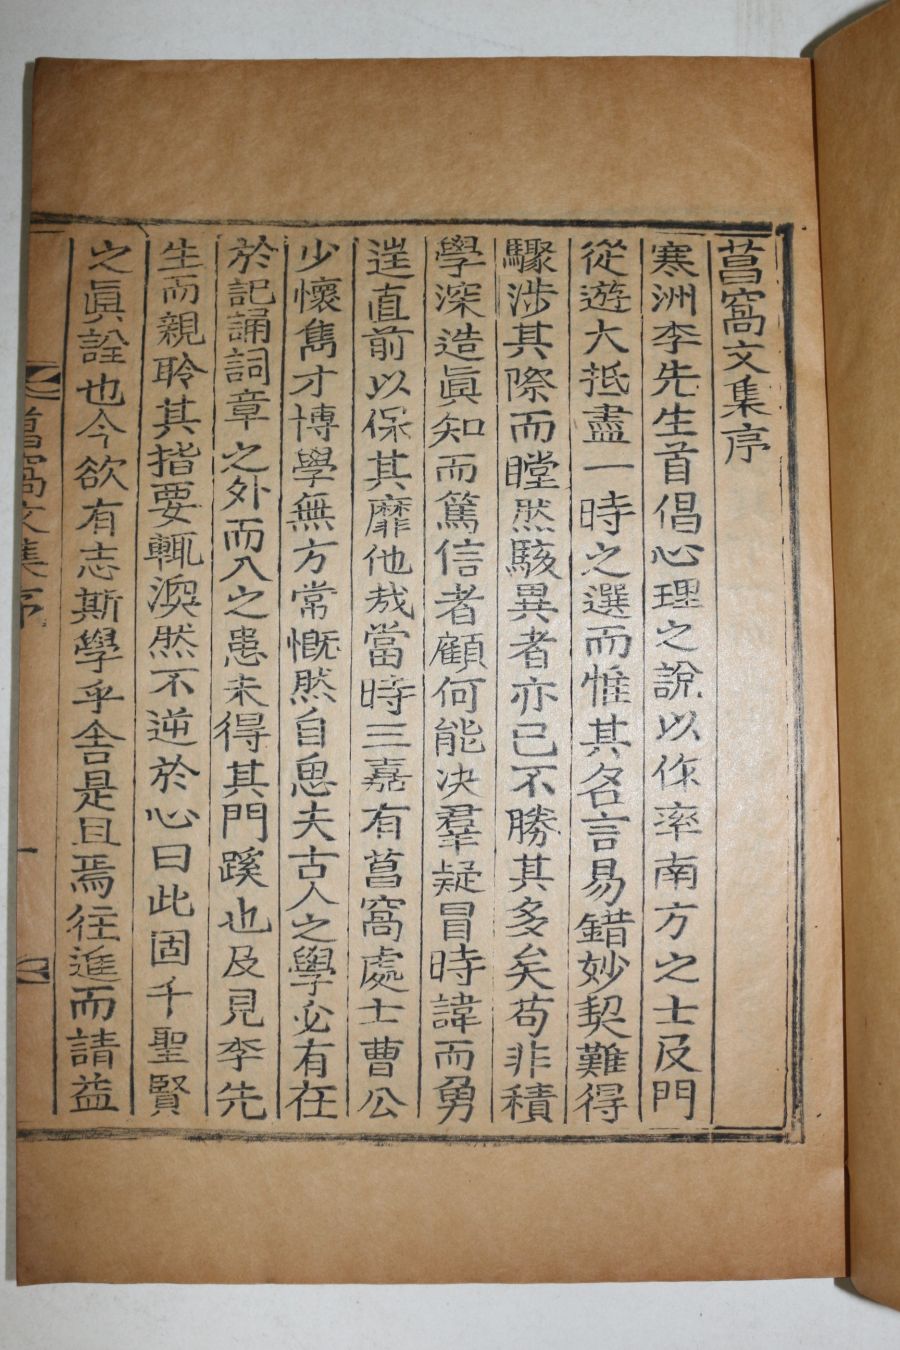 菖窩文集序
寒洲李先生首倡心理之說以作率南方之士及門
從遊大抵盡一時之選而惟其名言易錯妙契難得
驟涉其際而瞠然駭異者亦已不勝其多矣苟非積
學深造眞知而篤信者顧何能决羣疑冒時諱而勇
往直前以保其靡他哉當時三嘉有菖窩處士曹公
少懷雋才博學無方常慨然自思夫古人之學必有在
於記誦詞章之外而入之患未得其門蹊也及見李先
生而親聆其指要輒渙然不逆於心曰此固千聖賢
之眞詮也今欲有志斯學乎舍是且焉往進而請益
菖窩文集序 一